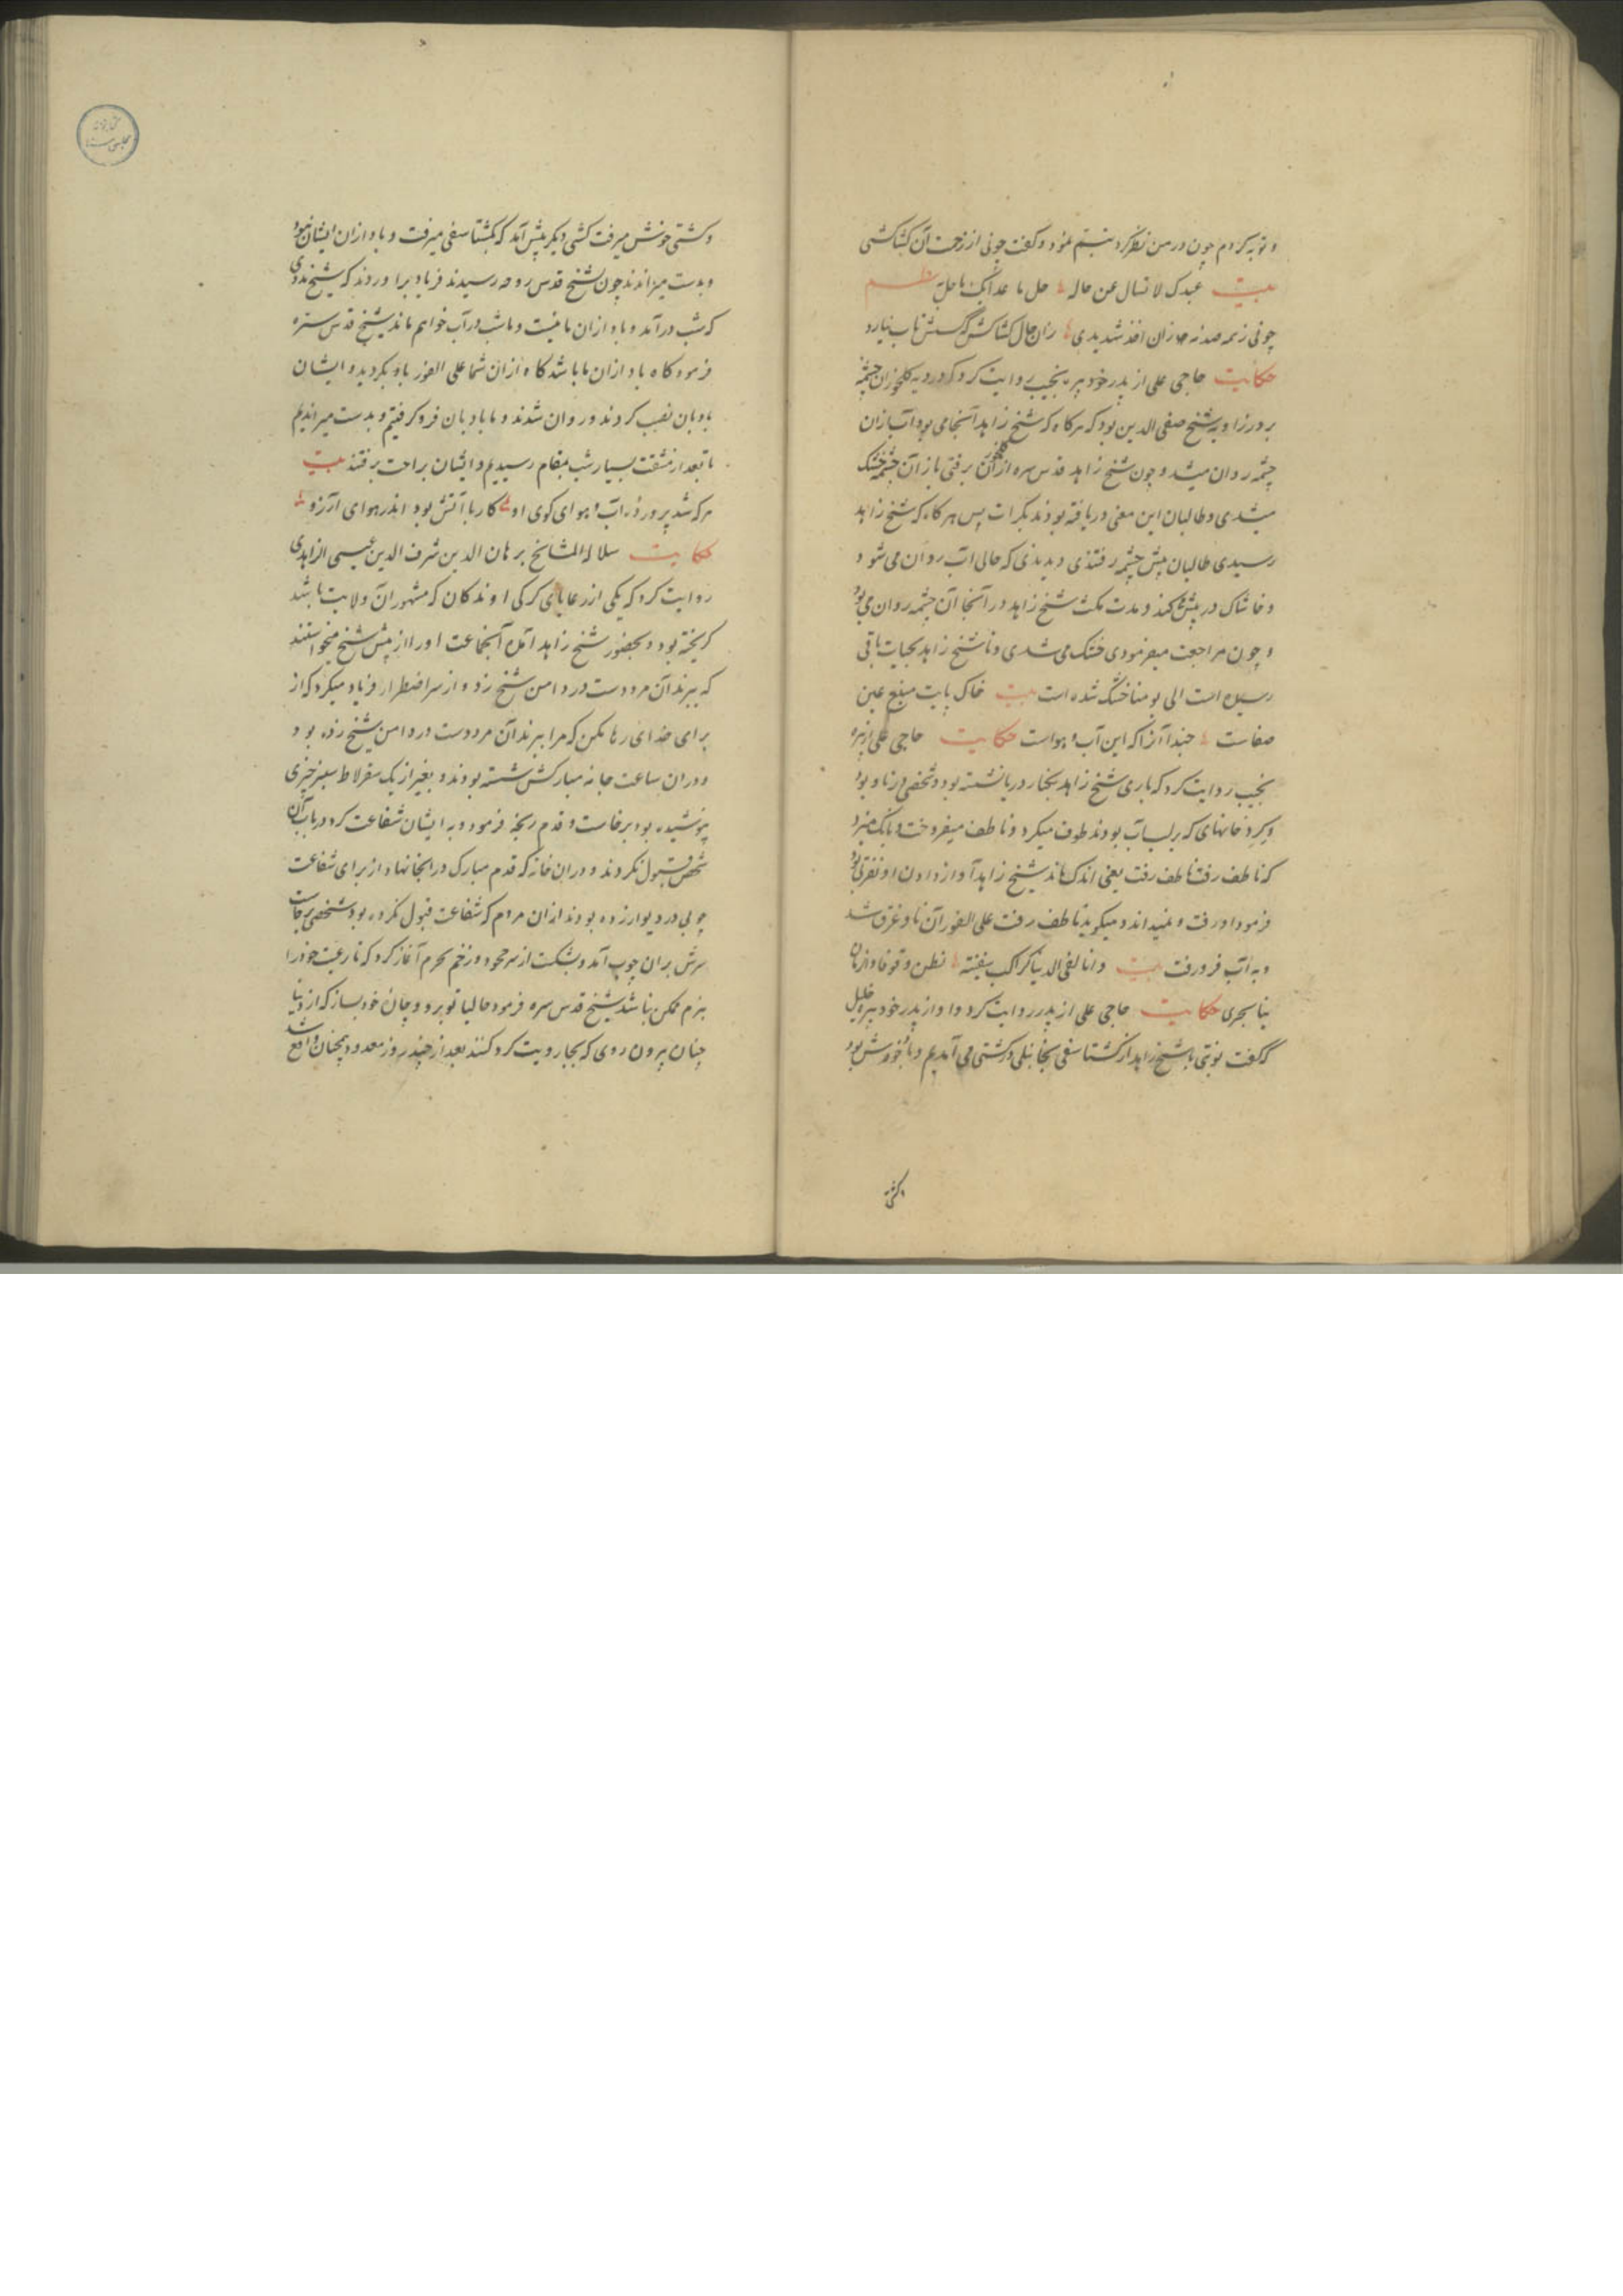 و توبه کردم چون در من نظر کرد تبسم نمود و گفت چونی از زحمت آن کشاکشی
بیت عبدک لا تسال عن حاله حل ما عداک ما حل
چونی ز نمه صدنه زان حال کشاکش تاب نیارد
حکایت حاجی علی از پدر خود پیره نجیب روایت کرد که در دیه کلخوران چشمه
بر در زاویه شیخ صفی الدین بود که هرکاه که شیخ زاهد آنجا می بود آب ازان
چشمه روان میشد و چون شیخ زاهد قدس سره ازان برفتی باز آن چشمه خشک
میشدی و طالبان این معنی دریافته بودند بکرات پس هرکاه که شیخ زاهد
رسیدی طالبان پیش چشمه رفتندی و دیدندی که حالی آب روان می شود
و خاشاک در پیش کند و مدت مکث شیخ زاهد در آنجا آن چشمه روان می بود
و چون مراجعت میفرمودی خشک می شدی و تا شیخ زاهد بحیات باقی
رسیده است الی یومنا خشک شده است بیت خاک پایت منبع عین
صفاست حبذا آنرا که این آب و هواست حکایت حاجی علی از پیره
نجیب روایت کرد که باری شیخ زاهد بکنار دریا نشسته بود و شخصی در ناو بود
و کرد خانهای که بر لب آب بودند طوف میکرد و ناطف میفروخت و بانک میزد
که ناطف رفت ناطف رفت یعنی اندک ماند شیخ زاهد را از آواز دادن او نفرتی بود
فرمود او رفت و نمیداند و میکوید ناطف رفت علی الفور آن ناو غرق شد
و به آب فرو رفت بیت و انا لفی الدنیا کراکب سفینة نظن وقوفا و الزمان
بنا یجری حکایت حاجی علی از پدر روایت کرد و او از پدر خود پیره خلیل
که گفت نوبتی با شیخ زاهد از کشتاسفی بخانبلی در کشتی می آمدیم و باد خوش بود
و کشتی
و کشتی خوش میرفت کشتی دیکر پیش آمد که بکشتاسفی میرفت و باد ازان ایشان نبود
و بدست میراندند چون بشیخ قدس روحه رسیدند فریاد برآوردند که شیخ مددی
که شب درآمد و باد ازان ما نیست و ما شب در آب خواهیم ماند شیخ قدس سره
فرمود کاه باد ازان ما باشد کاه ازان شما علی الفور باد بکردید و ایشان
بادبان نصب کردند و روان شدند و ما بادبان فرو کرفتیم و بدست میراندیم
تا بعد از مشقت بسیار شب بمقام رسیدیم و ایشان براحت برفتند بیت
هر که شد پرورده آب و هوای کوی او کار با آتش بود اندر هوای آرزو
حکایت سلالة المشایخ برهان الدین شرف الدین عیسی الزاهدی
روایت کرد که یکی از رعایای کرکی اوندکان که مشهور آن ولایت باشد
کریخته بود و بحضور شیخ زاهد آمد آنجماعت او را از پیش شیخ میخواستند
که ببرند آن مرد دست در دامن شیخ زد و از سر اضطرار فریاد میکرد که از
برای خدای رها مکن که مرا ببرند آن مرد دست در دامن شیخ زده بود
و دران ساعت جامه مبارکش شسته بودند و بغیر از یک سقرلاط سبز چیزی
پوشیده بود برخاست و قدم رنجه فرمود و به ایشان شفاعت کرد در باب آن
شخص قبول نکردند و دران خانه که قدم مبارک در انجا نهاد از برای شفاعت
چوبی در دیوار زده بودند ازان مردم که شفاعت قبول نکرده بود شخصی برخاست
سرش بران چوب آمد و بشکست از سر خود و زخم بحرم آغاز کرد که تا رعیت خود را
نبرم ممکن نباشد شیخ قدس سره فرمود حالیا تو برو و چاره خود بساز که از دنیا
چنان بیرون روی که بجاروبت کرد کنند بعد از چند روز معدود همچنان واقع شد